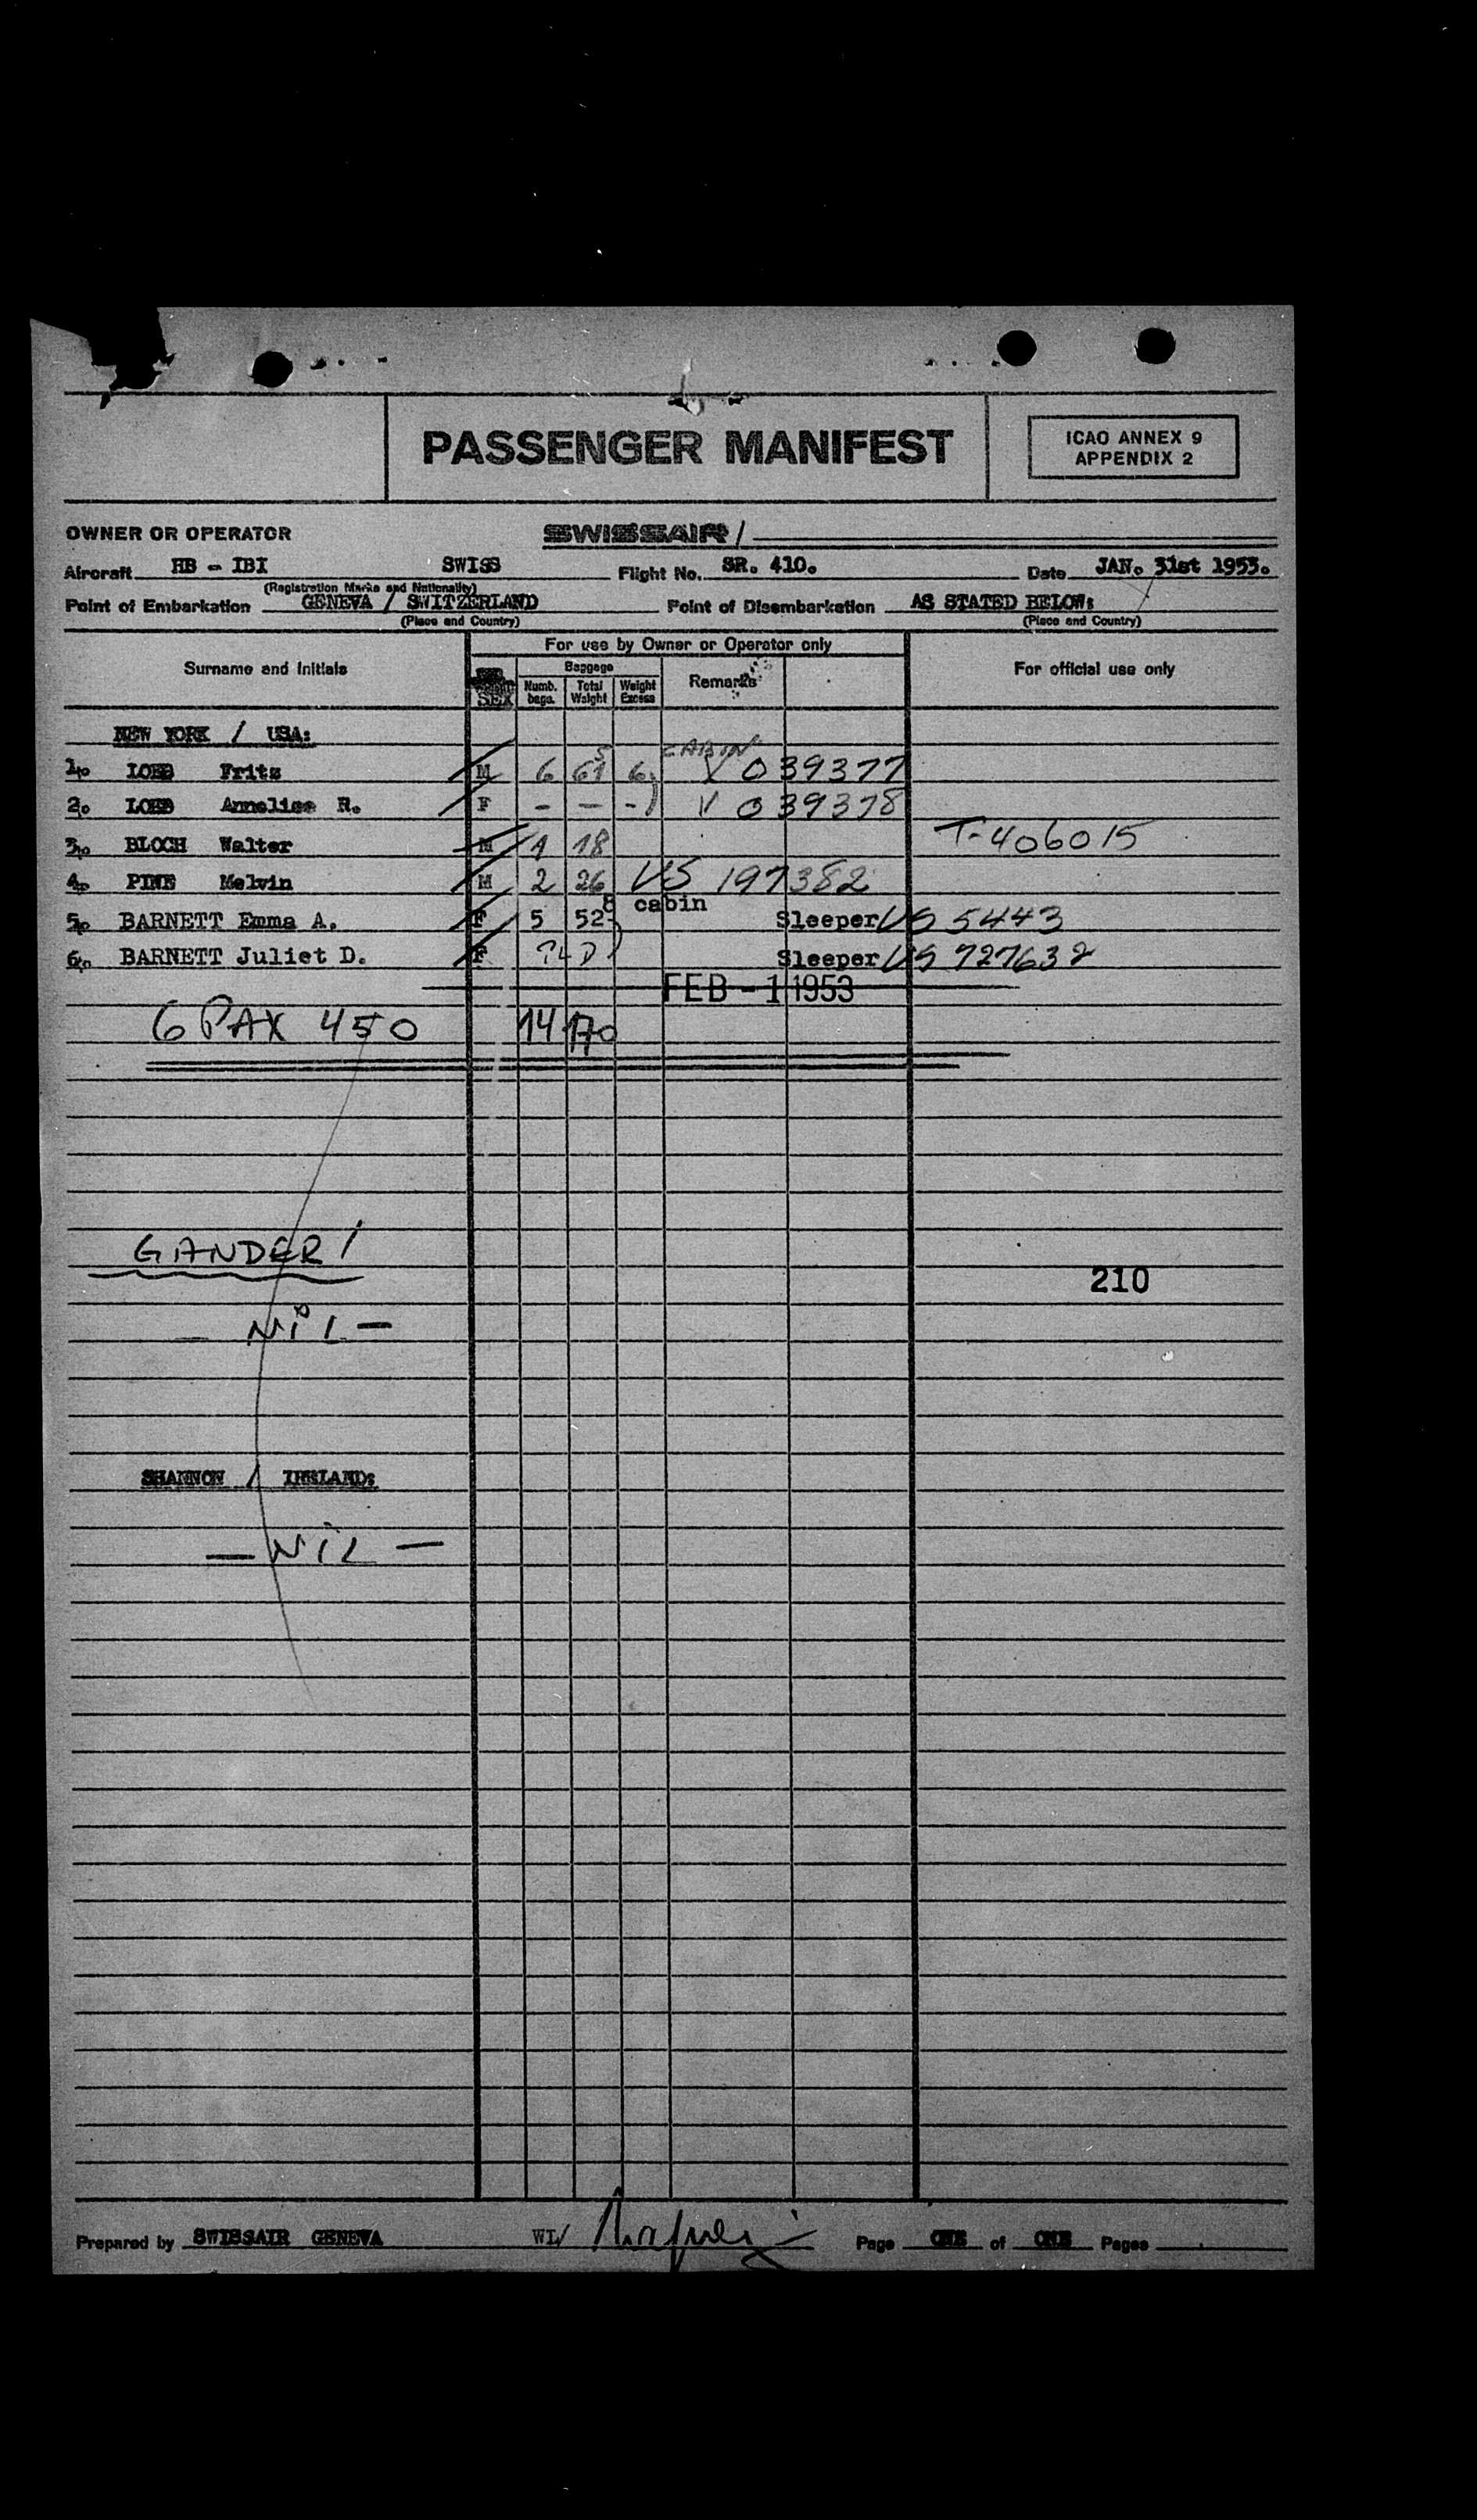 PASSENGER MANIFEST
ICAO ANNEX 9
APPENDIX 2
OWNER OR OPERATOR SWISSAIR/
Aircraft HB - IBI SWISS Flight No. SR. 410. Date JAN. 31st 1953.
(Registration Marks and Nationality)
Point of Embarkation GENEVA / SWITZERLAND Point of Disembarkation AS STATED BELOW:
(Place and Country) (Place and Country)
For use by Owner or Operator only
Surname and Initials SEX Baggage Remarks For official use only
Numb. bags. Total Weight Weight Excess
NEW YORK / USA:
CABIN
1. LOEB Fritz M 6 61 6 V 039377
2. LOEB Annelise R. F - - - V 039378
3. BLOCH Walter M 1 18 T-406015
4. PINE Melvin M 2 26 US 197382
8 cabin
5. BARNETT Emma A. F 5 52 Sleeper US 5443
6. BARNETT Juliet D. F Sleeper US 727632
FEB - 1 1953
6 PAX 450 14 170
GANDER /
210
- NIL -
SHANNON / IRELAND:
- NIL -
Prepared by SWISSAIR GENEVA WL/ Page ONE of ONE Pages